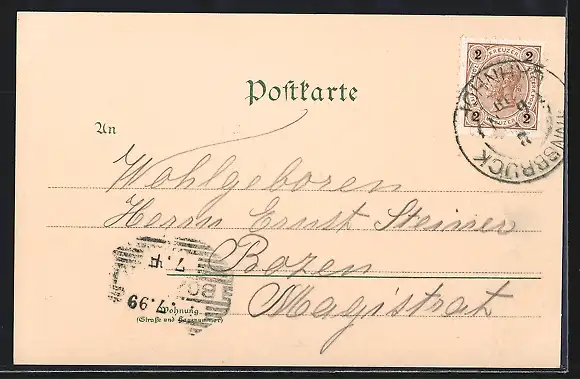 Postkarte
2 KREUZER 2
2 2
INNSBRUCK
An
Wohlgeboren
Herrn Ernst Steiner
Bozen
Magistrat
7.99
Wohnung
(Straße und Hausnummer)